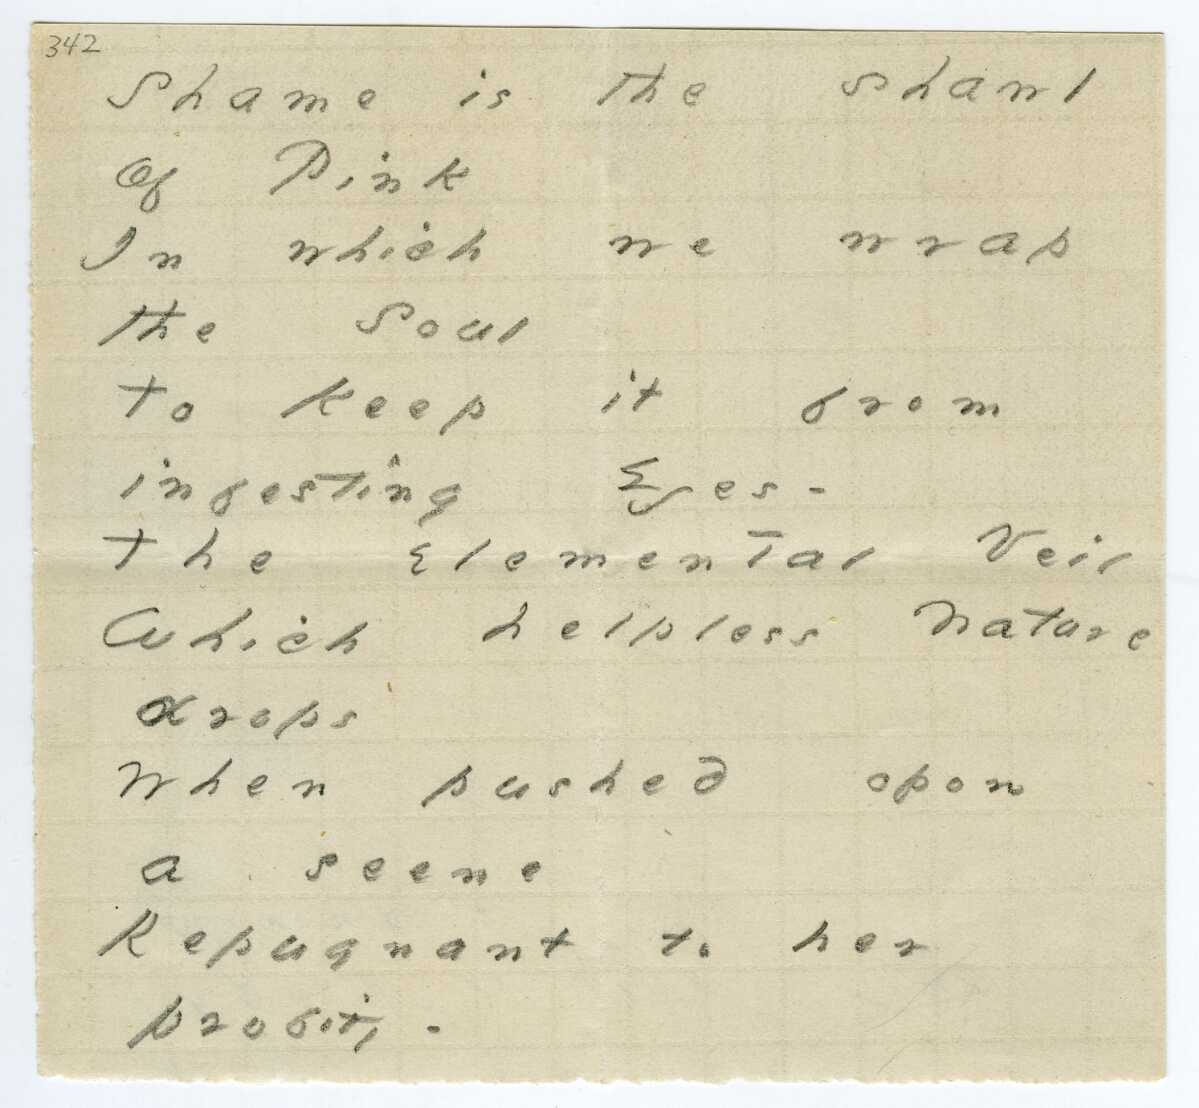 342
Shame is the shawl
Of Pink
In which we wrap
the Soul
to keep it from
infesting Eyes -
the Elemental Veil
Which helpless Nature
drops
When pushed opon
a scene
Repugnant to her
probity -